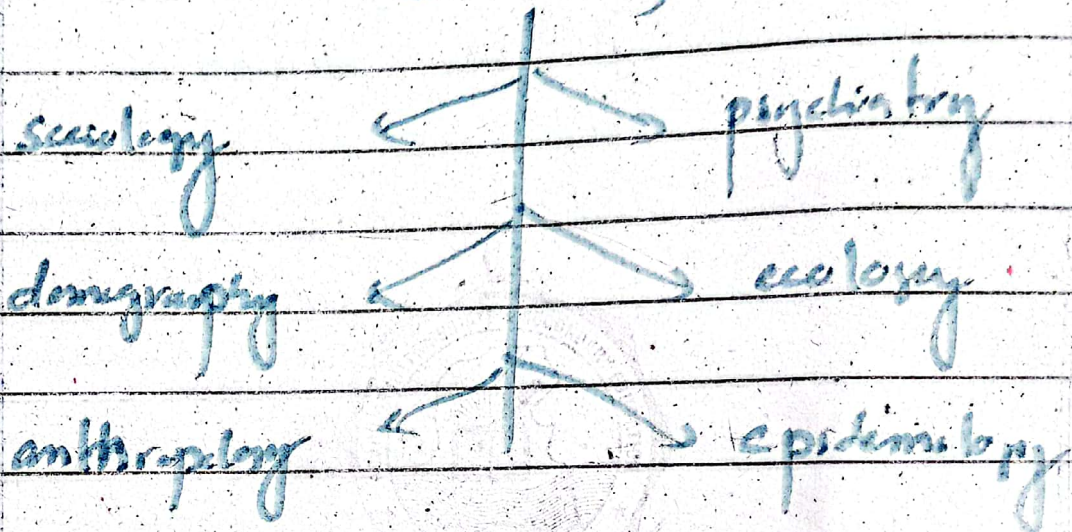 sociology psychiatry
demography ecology
anthropology epidemiology